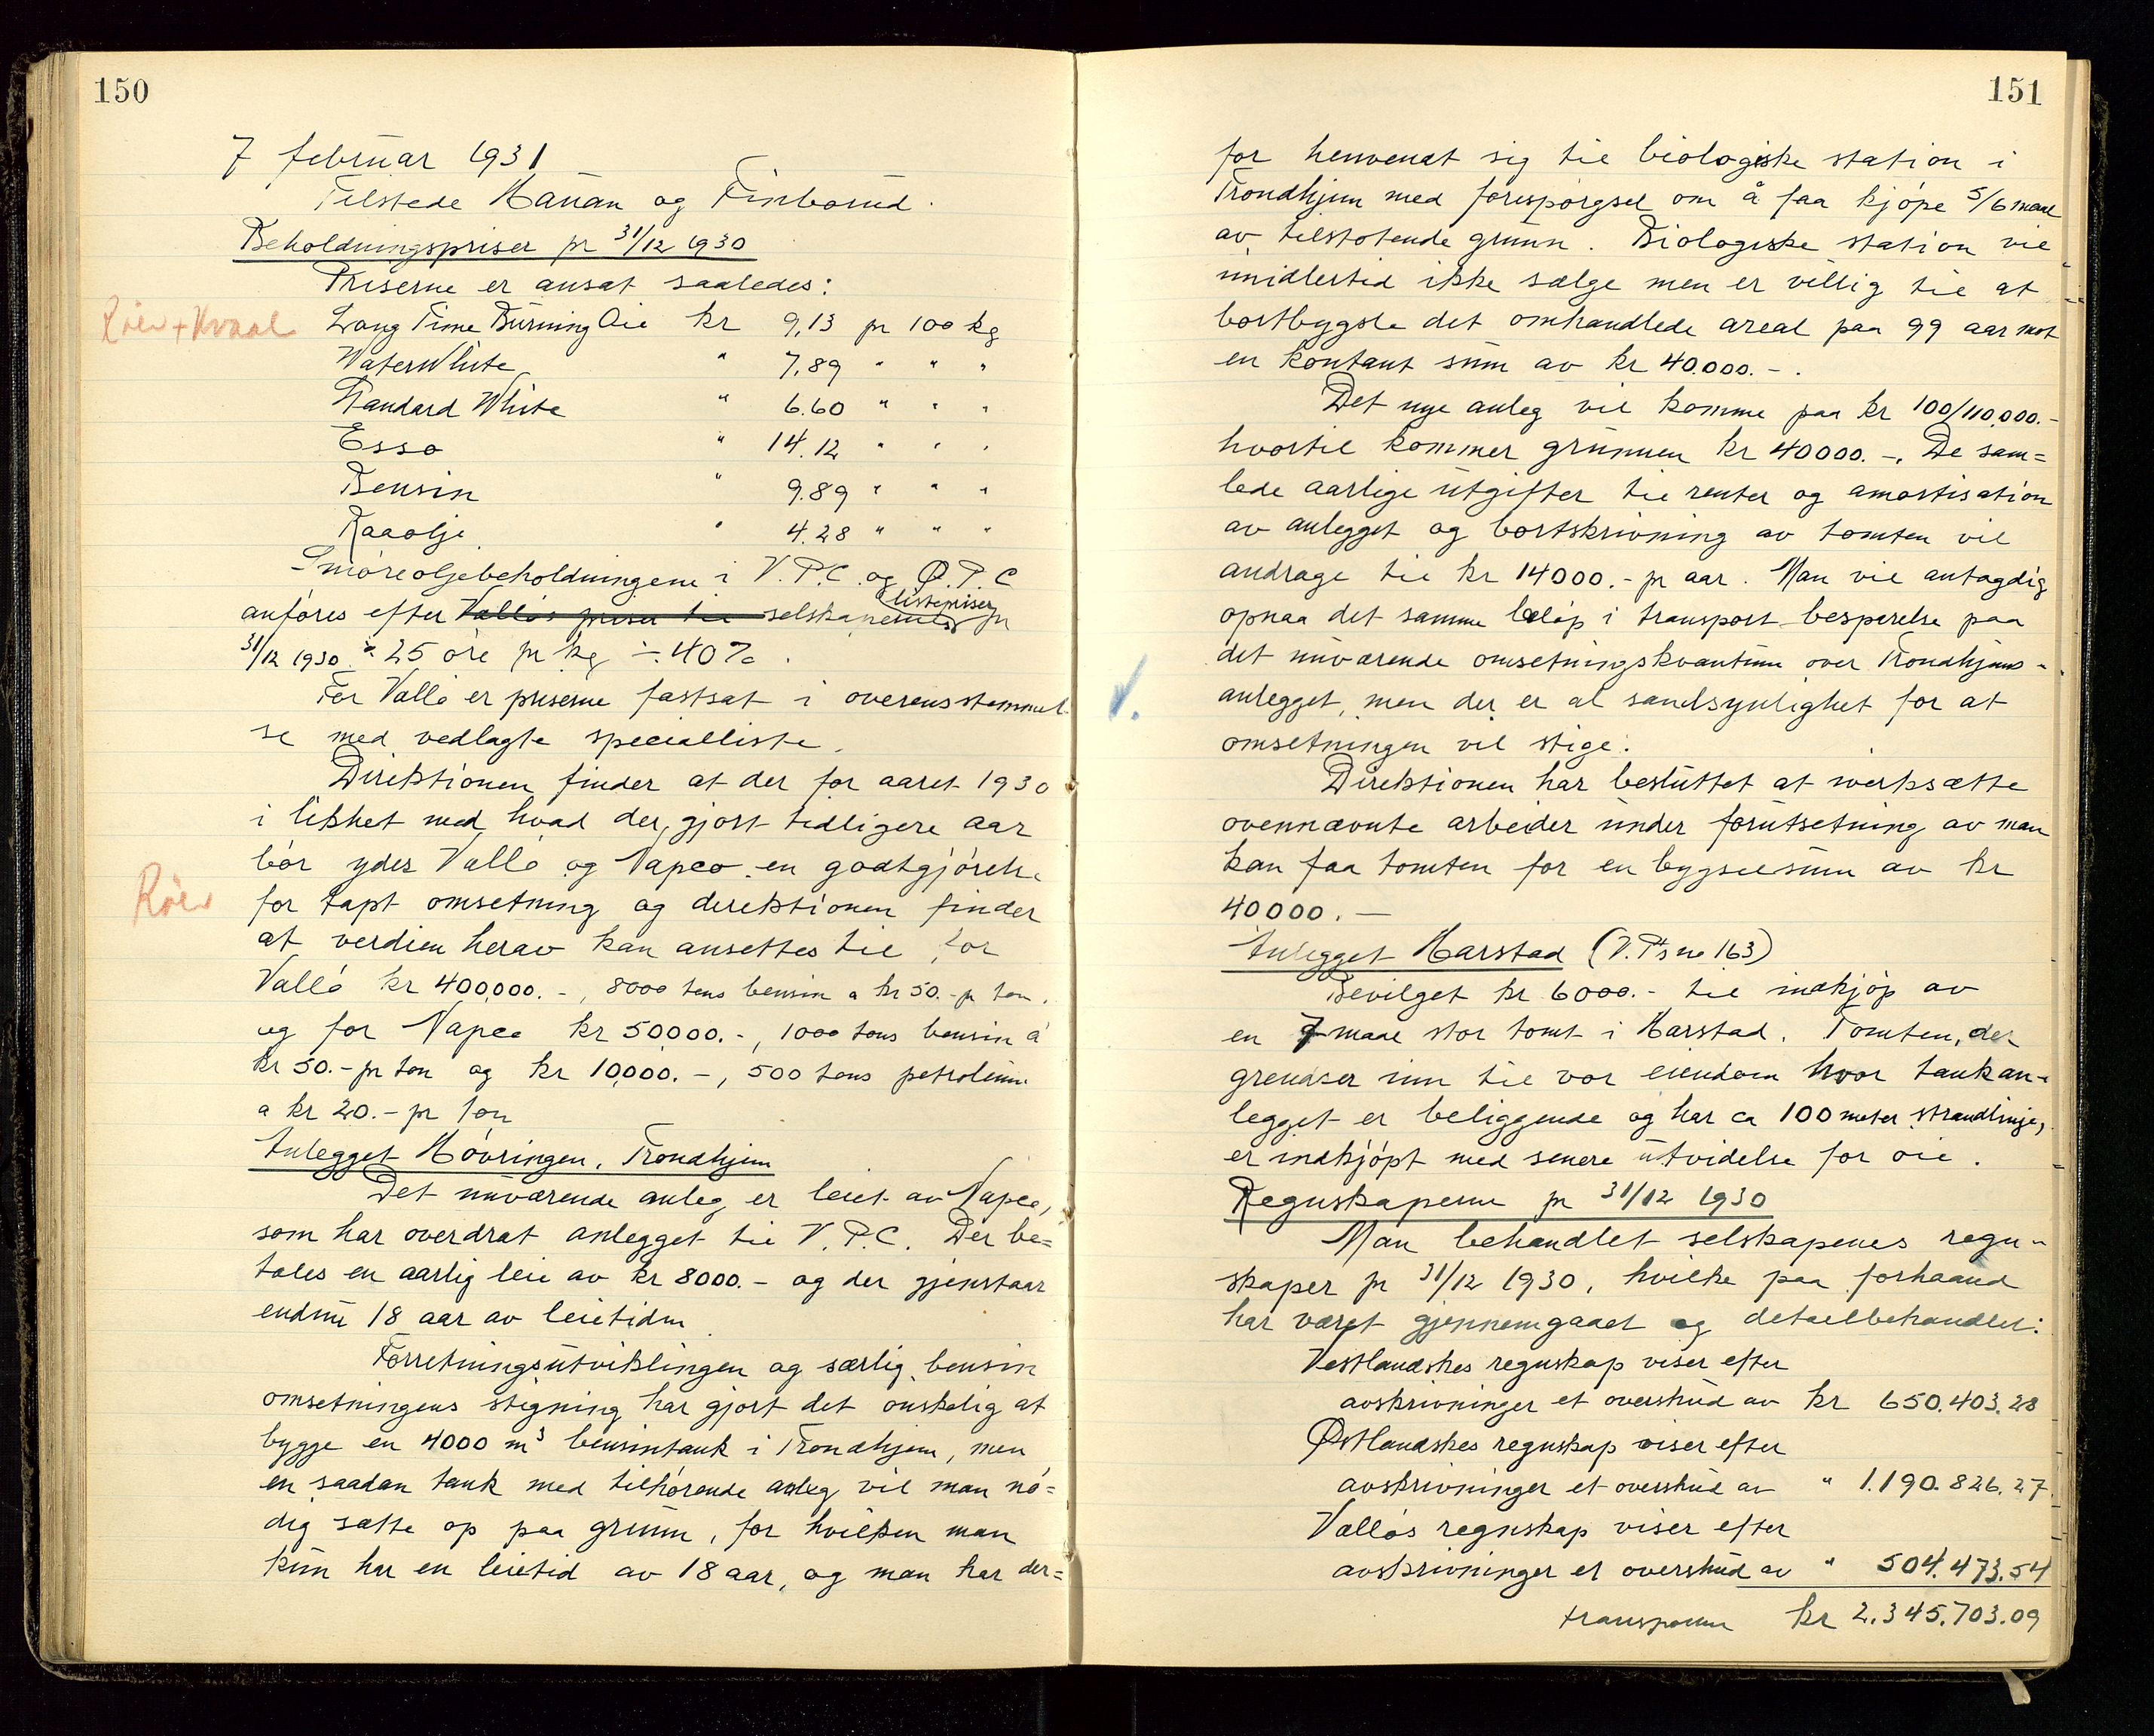 150
7 februar 1931
Tilstede Hanan og Finborud.
Beholdningspriser pr 31/12 1930
Priserne er ansat saaledes:
Röer + Kvaal
Long Time Burning Oil kr 9,13 pr 100 kg
WaterWhite " 7,89 " " "
Standard White " 6.60 " " "
Esso " 14.12 " " "
Bensin " 9.89 " " "
Raaolje " 4.28 " " "
Smöreoljebeholdningene i V.P.C. og Ø.P.C
anföres efter Vallös priser til selskapernes listepriser pr
31/12 1930 ÷ 25 öre pr kg ÷ 40%.
For Vallö er priserne fastsat i overensstemmel-
se med vedlagte specialliste.
Direktionen finder at der for aaret 1930
i likhet med hvad der gjort tidligere aar
bör ydes Vallö og Napco en godtgjörelse
Röer
for tapt omsetning og direktionen finder
at verdien herav kan ansettes til for
Vallö kr 400,000.-, 8000 tons bensin a kr 50.- pr ton.
og for Napco kr 50000.-, 1000 tons bensin á
kr 50.- pr ton og kr 10,000.-, 500 tons petroleum
a kr 20.- pr ton
Anlegget Hövringen, Trondhjem
Det nuværende anleg er leiet av Napco,
som har overdrat anlegget til V.P.C. Der be=
tales en aarlig leie av kr 8000.- og der gjenstaar
endnu 18 aar av leietiden
Forretningsutviklingen og særlig bensin
omsetningens stigning har gjort det önskelig at
bygge en 4000 m³ bensintank i Trondhjem, men
en saadan tank med tilhörende anleg vil man nö=
dig sætte op paa grunn, for hvilken man
kun har en leietid av 18 aar, og man har der=
151
for henvendt sig til biologiske station i
Trondhjem med forespörgsel om å faa kjöpe 5/6 maal
av tilstötende grunn. Biologiske station vil
imidlertid ikke sælge men er villig til at
bortbygsle det omhandlede areal paa 99 aar mot
en kontant sum av kr 40.000.-.
Det nye anleg vil komme paa kr 100/110,000.-
hvortil kommer grunnen kr 40000.-. De sam=
lede aarlige utgifter til renter og amortisation
av anlegget og bortskrivning av tomten vil
andrage til kr 14000.- pr aar. Man vil antagelig
opnaa det samme belöp i transport besparelse paa
det nuværende omsetningskvantum over Trondhjems-
V.
anlegget, men der er al sandsynlighet for at
omsetningen vil stige.
Direktionen har besluttet at iverksætte
ovennævnte arbeider under forutsetning av man
kan faa tomten for en bygselsum av kr
40000.—
Anlegget Harstad (V.P's no 163)
Bevilget kr 6000.- til indkjöp av
en 7 maal stor tomt i Harstad. Tomten, der
grendser inn til vor eiendom hvor tankan-
legget er beliggende og har ca 100 meter strandlinje,
er indkjöpt med senere utvidelse for öie.
Regnskaperne pr 31/12 1930
Man behandlet selskapenes regn-
skaper pr 31/12 1930, hvilke paa forhaand
har været gjennemgaaet og detaelbehandlet:
Vestlandskes regnskap viser efter
avskrivninger et overskud av kr 650.403.28
Østlandskes regnskap viser efter
avskrivninger et overskud av " 1.190.826.27
Vallös regnskap viser efter
avskrivninger et overskud av " 504.473.54
transporteres kr 2.345.703.09